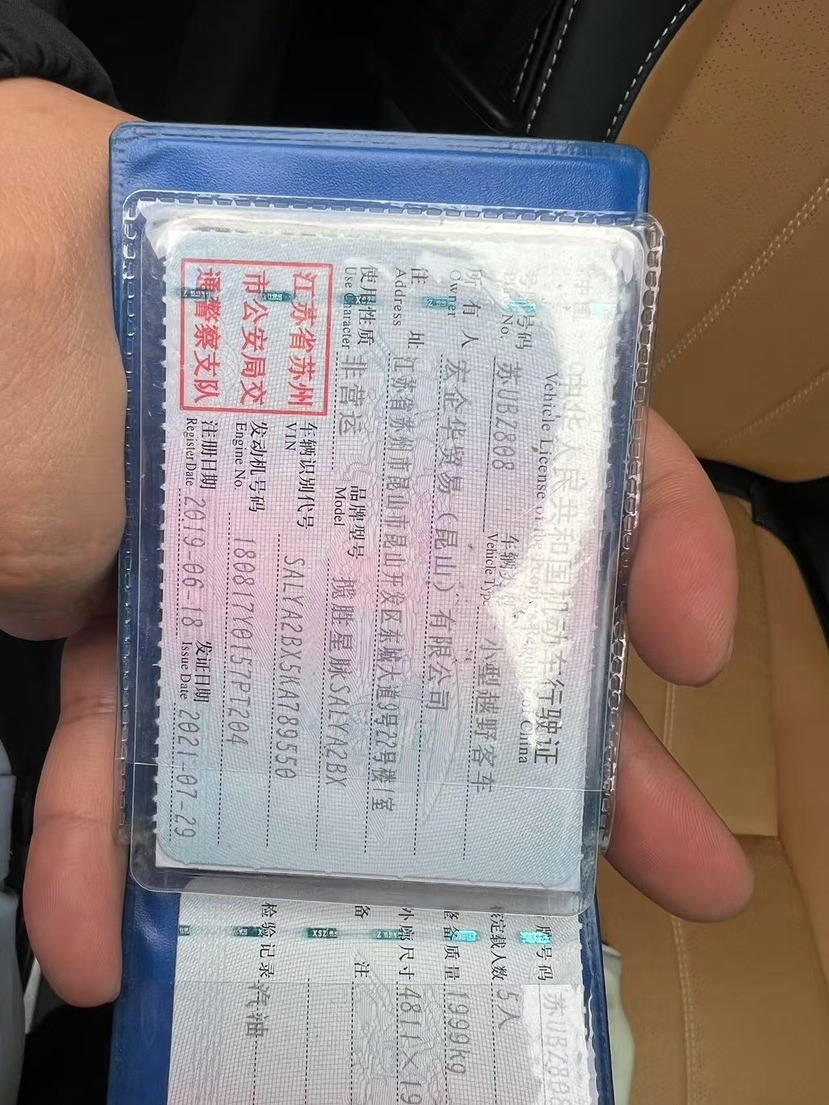 中华人民共和国机动车行驶证
Vehicle License of the People's Republic of China
号码 苏UBZ808 车辆类型 小型越野客车
No. Vehicle Type
所有人 宏企华贸易（昆山）有限公司
Owner
住址 江苏省苏州市昆山市昆山开发区东城大道9号22号楼1室
Address
使用性质 非营运 品牌型号 揽胜星脉SALYA2BX
Use Character Model
江苏省苏州
市公安局交
通警察支队
车辆识别代号 SALYA2BX5KA789550
VIN
发动机号码 180817Y0157PT204
Engine No.
注册日期 2019-06-18 发证日期 2021-07-29
Register Date Issue Date
牌号码 苏UBZ808
核定载人数 5人
整备质量 1999kg
外廓尺寸 4811×19
备注
检验记录 汽油